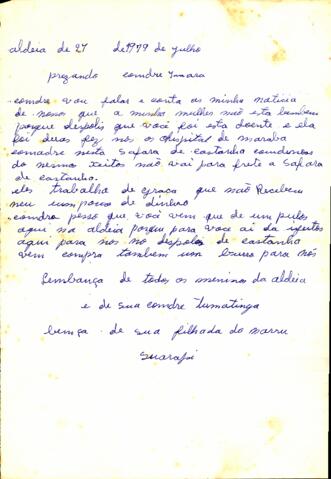 aldeia de 27 de 1979 de julho
prezando comdre Imara
comdre vou falar e conta as minha noticia
de novos que a minha mulher não esta bem bem
porque despolis que você foi esta doente e ela
foi duas vez nos o hospital de maraba
comadre nesta safara de castanha condemos
do mesmo xeitos não vai para frete a safara
de castanha.
eles trabalho de graca que não Recebem
nem um pouco de dinhro
comdre pesso que você vem que de um pulos
aqui na aldeia porqum para voce ai da
aqui para nos no despolos de castanha
vem compra tambem um burro para nós
Lembança de todos os meninos da aldeia
e de sua comdre Tumatinga
bença de sua filhada do marru